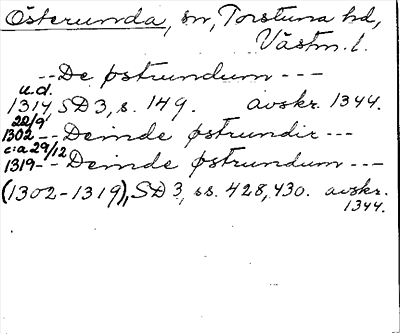 Österunda, sn, Torstuna hd,
Västm. l.
--De østrundum---
u.d.
1314 SD3, s. 149. avskr. 1344.
22/9
1302--Deinde østrundir---
c:a 29/12
1319--Deinde østrundum---
(1302-1319), SD3, ss. 428, 430. avskr.
1344.